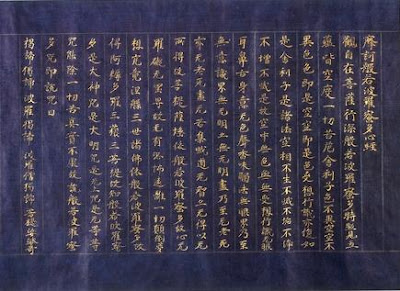 摩訶般若波羅蜜多心經
觀自在菩薩行深般若波羅蜜多時照見五
蘊皆空度一切苦厄舍利子色不異空空不
異色色即是空空即是色受想行識亦復如
是舍利子是諸法空相不生不滅不垢不淨
不增不減是故空中無色無受想行識無眼
耳鼻舌身意无色聲香味觸法無眼界乃至
無意識界无無明亦无無明盡乃至无老死
亦无老死盡无苦集滅道无智亦无得以无
所得故菩提薩埵依般若波羅蜜多故心无
罣礙无罣礙故无有恐怖遠離一切顛倒夢
想究竟涅槃三世諸佛依般若波羅蜜多故
得阿耨多羅三藐三菩提故知般若波羅蜜
多是大神咒是大明咒是无上咒是无等等
咒能除一切苦真實不虛故說般若波羅蜜
多咒即說咒曰
揭諦揭諦 波羅揭諦 波羅僧揭諦 菩提